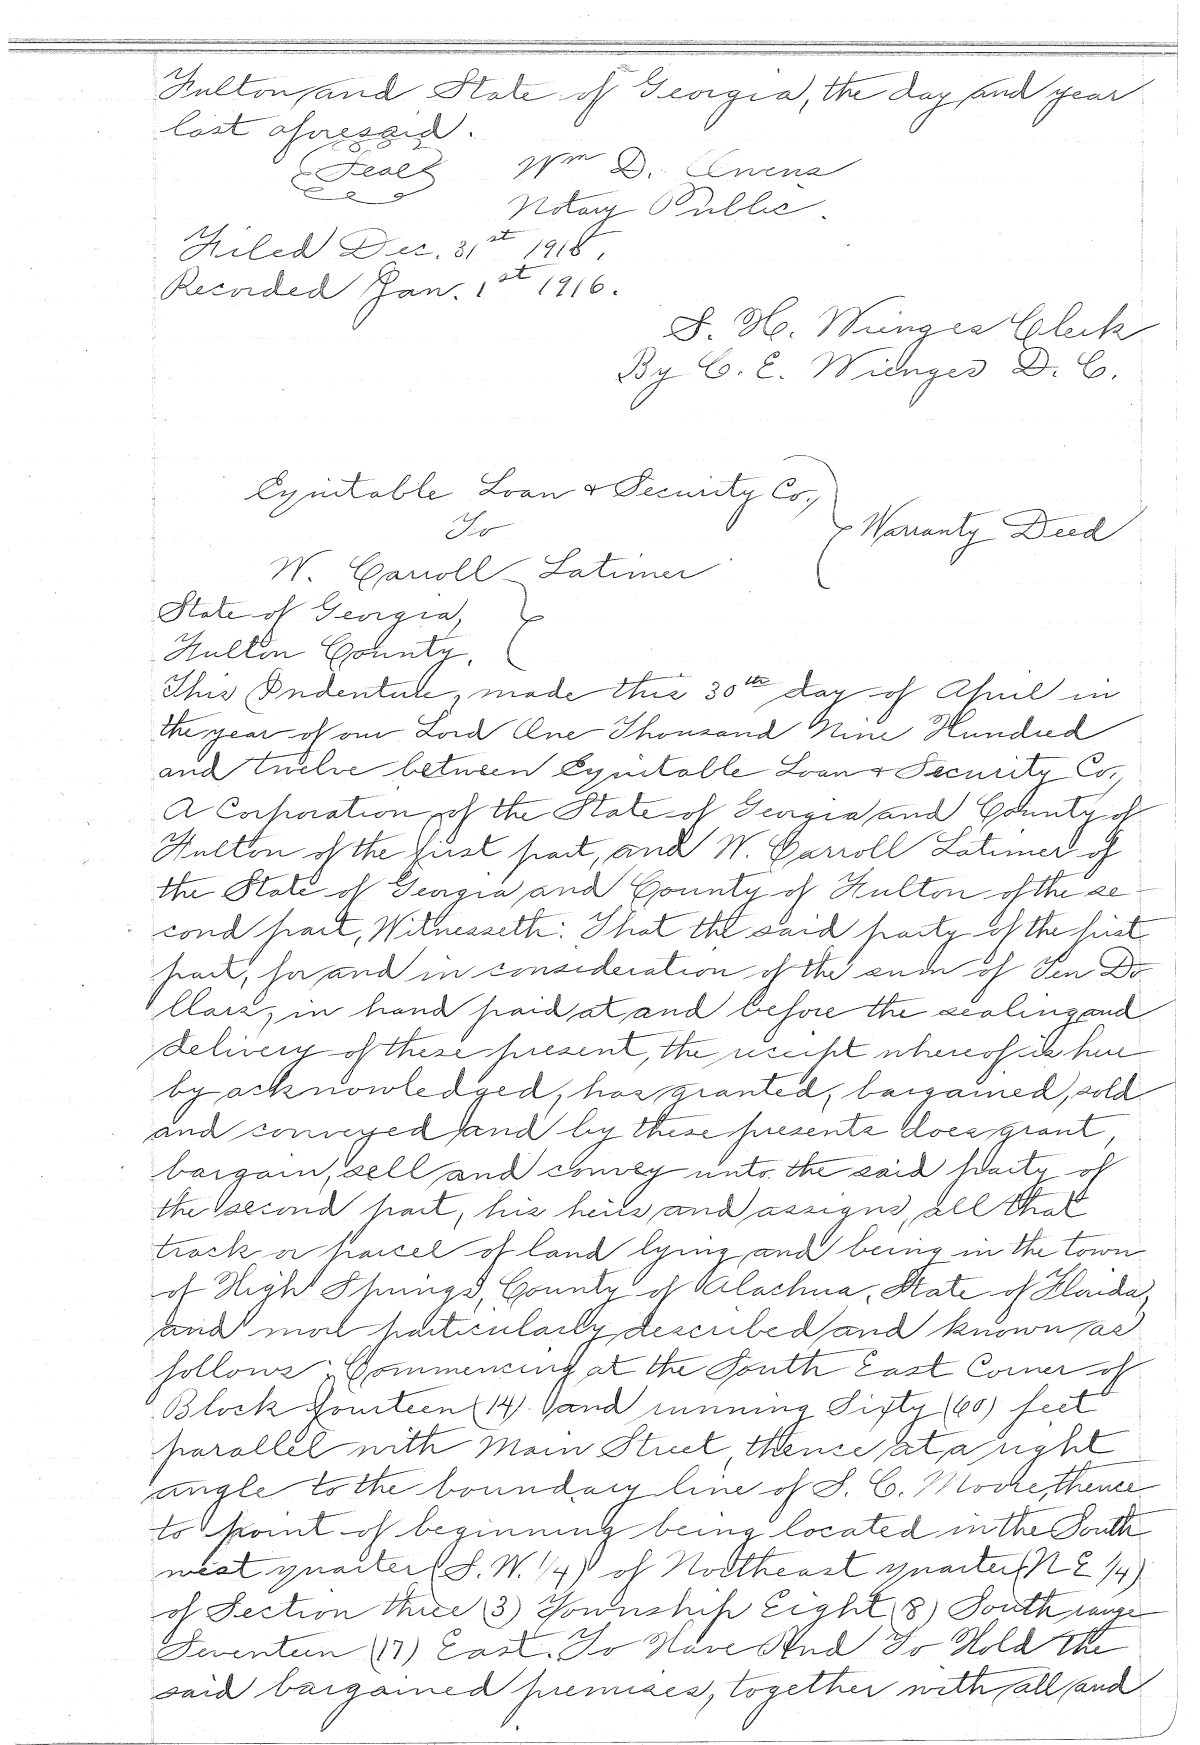 Fulton and State of Georgia, the day and year
last aforesaid.
(Seal) Wm D. Owens
Notary Public.
Filed Dec. 31st 1915,
Recorded Jan. 1st 1916.
S. H. Wienges Clerk
By C. E. Wienges D. C.
Equitable Loan & Security Co.,
To
Warranty Deed
W. Carroll Latimer
State of Georgia,
Fulton County.
This Indenture, made this 30th day of April in
the year of our Lord One Thousand Nine Hundred
and twelve between Equitable Loan & Security Co.,
A Corporation of the State of Georgia and County of
Fulton of the first part, and W. Carroll Latimer of
the State of Georgia and County of Fulton of the se-
cond part, Witnesseth: That the said party of the first
part, for and in consideration of the sum of Ten Do-
llars, in hand paid at and before the sealing and
delivery of these present, the receipt whereof is here
by acknowledged, has granted, bargained, sold
and conveyed and by these presents does grant,
bargain, sell and convey unto the said party of
the second part, his heirs and assigns, all that
track or parcel of land lying and being in the town
of High Springs, County of Alachua, State of Florida,
and more particularly described and known as
follows: Commencing at the South East Corner of
Block fourteen (14) and running Sixty (60) feet
parallel with Main Street, thence at a right
angle to the boundary line of S. C. Moore, thence
to point of beginning being located in the South
west quarter (S. W. 1/4) of Northeast quarter (N E 1/4)
of Section three (3) Township Eight (8) South range
Seventeen (17) East. To Have And To Hold the
said bargained premises, together with all and